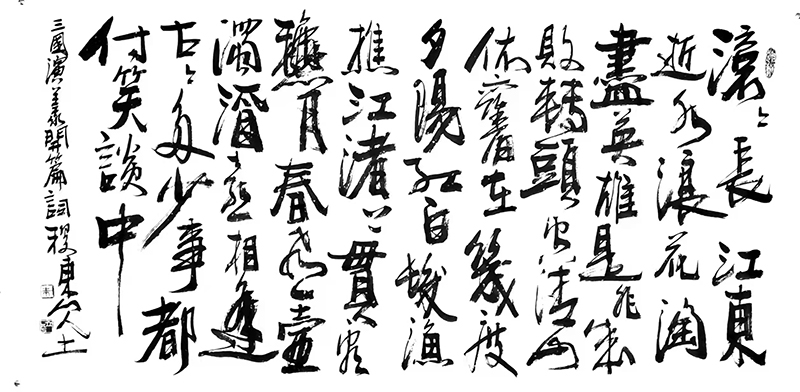 滾〻長江東
逝水浪花淘
盡英雄是非成
敗轉頭空青山
依舊在幾度
夕陽紅白髮漁
樵江渚上貫看
龝月春風一壺
濁酒喜相逢
古〻多少事都
付笑談中
三國演義開篇詞 稷東